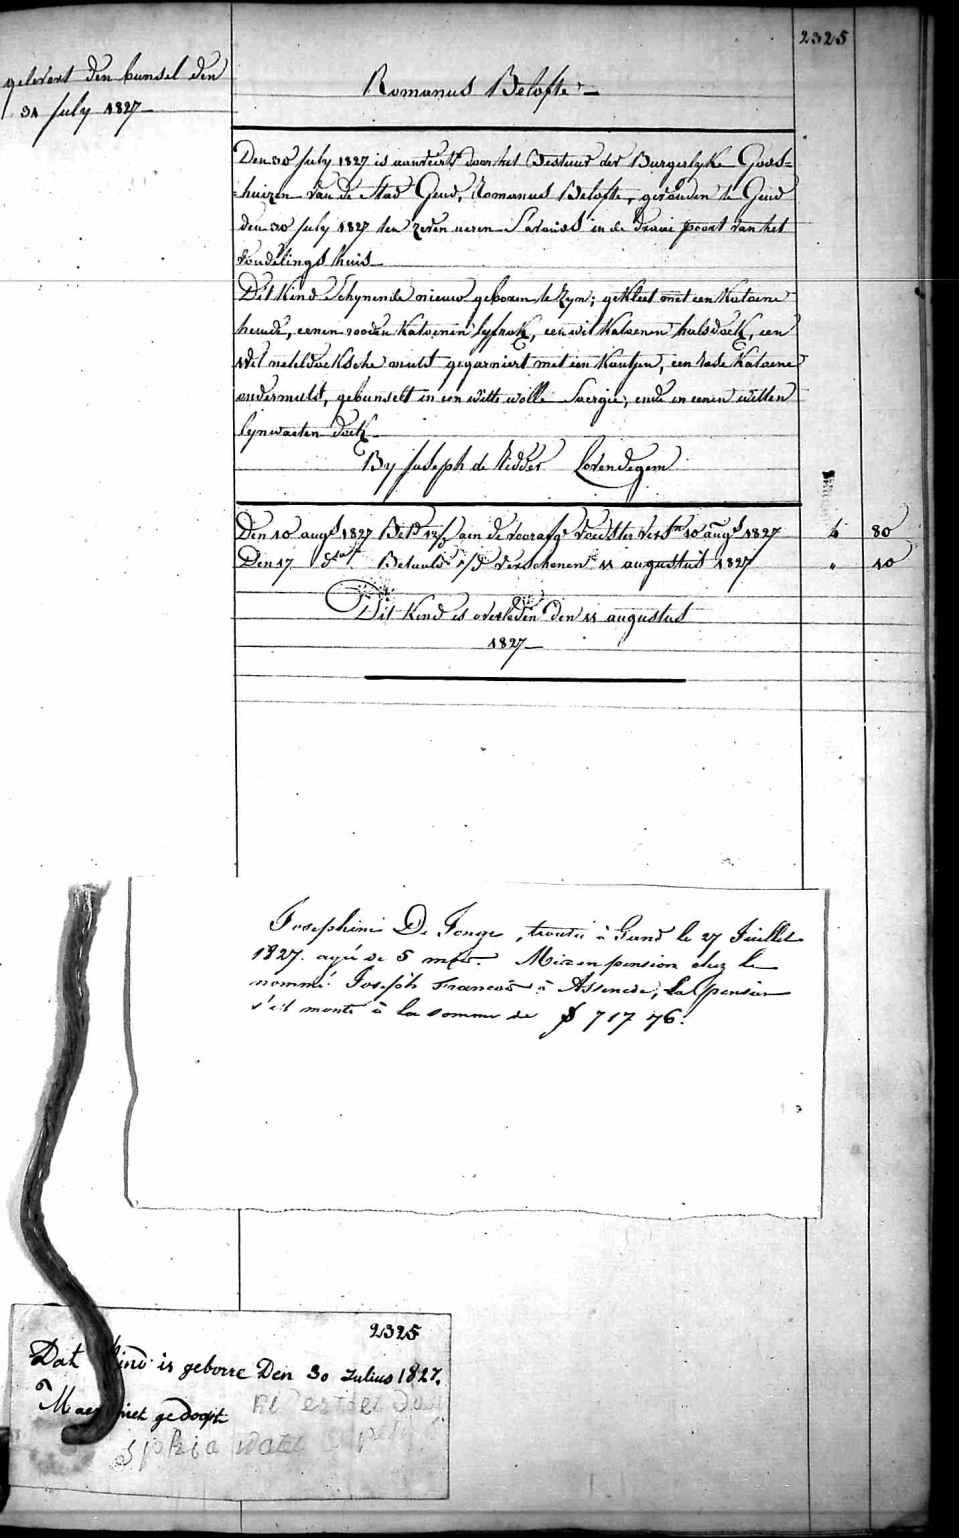 2325
gelevert den bunsel den
31 July 1827
Romanus Belofte
Den 30 July 1827 is aanveert door het Bestuur der Burgerlyke Gods=
=huizen van de Stad Gend, Romanus Belofte, gevonden te Gend
den 30 July 1827 ten zeven ueren S'avonds in de draai poort van het
vondelings huis
Dit Kind Schynende nieuw geboren te Zyn; gekleet met een Katoene
hemde, eenen rooden Katoenen lyfrok, een wit Katoenen halsdoek, een
wit neteldoeksche muts gegarniert met een Kantjen, een rode Katoene
ondermuts, gebunselt in een witte wolle Saergie, ende in eenen witten
lynwaeten doek
By Joseph de Ridder Lovendegem
Den 10 augs 1827 aen de voedster 10 augs 1827 4 80
Den 17 do Betaald verschenen 11 augustus 1827 " 10
Dit Kind is overleden den 11 augustus
1827
Josephine De Jonge, trouvée à Gand le 27 Juillet
1827. agée de 5 mois. Mise en pension chez le
nommé Joseph Francois à Assenede, La pension
s'est monté à la somme de 717 76.
2325
Dat kind is geborre Den 30 Julius 1827.
Maer niet gedoopt